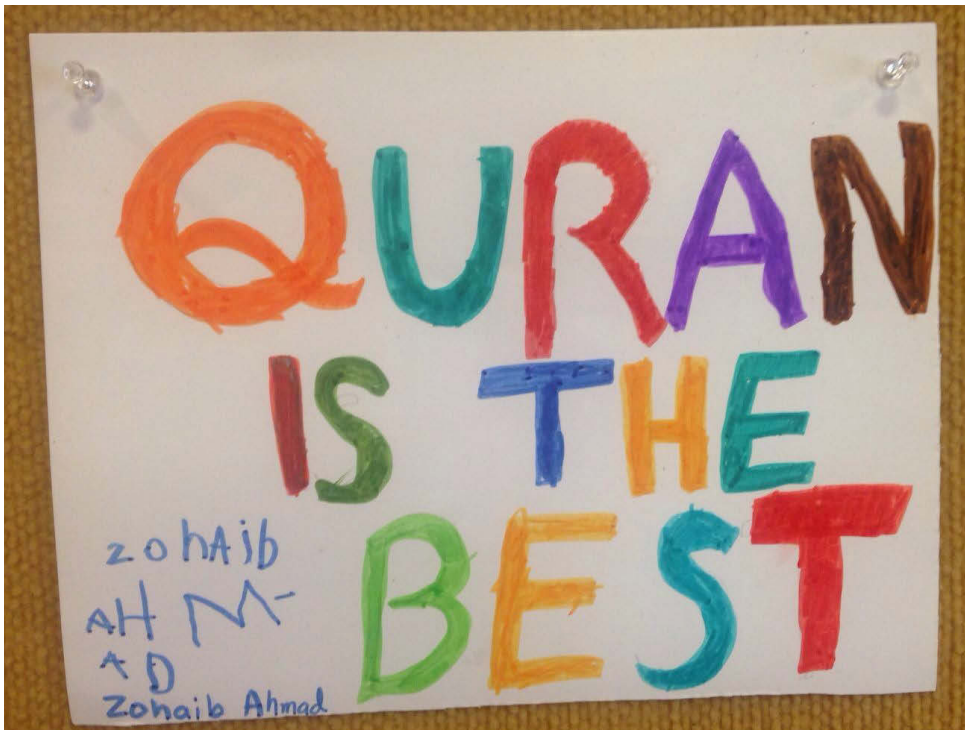 QURAN
IS THE
BEST
zohAib
AH M-
AD
Zohaib Ahmad